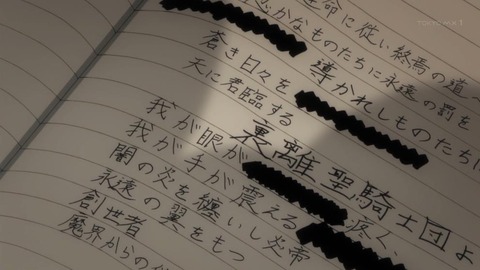 TOKYO MX1
命に従い終焉の道へ
かなものたちに永遠の罰を
蒼き日々を 導かれしものたちに
天に君臨する
裏離聖騎士団よ
我が眼が 疼く、
我が手が震える
闇の炎を纏いし炎帝
永遠の翼をもつ
創世者
魔界からの